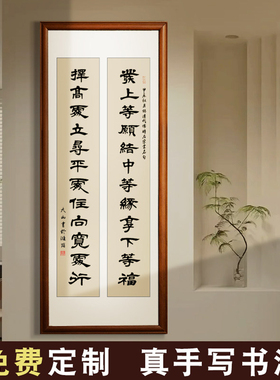 發上等願結中等緣享下等福
擇高處立尋平處住向寬處行
免费定制 真手写书法